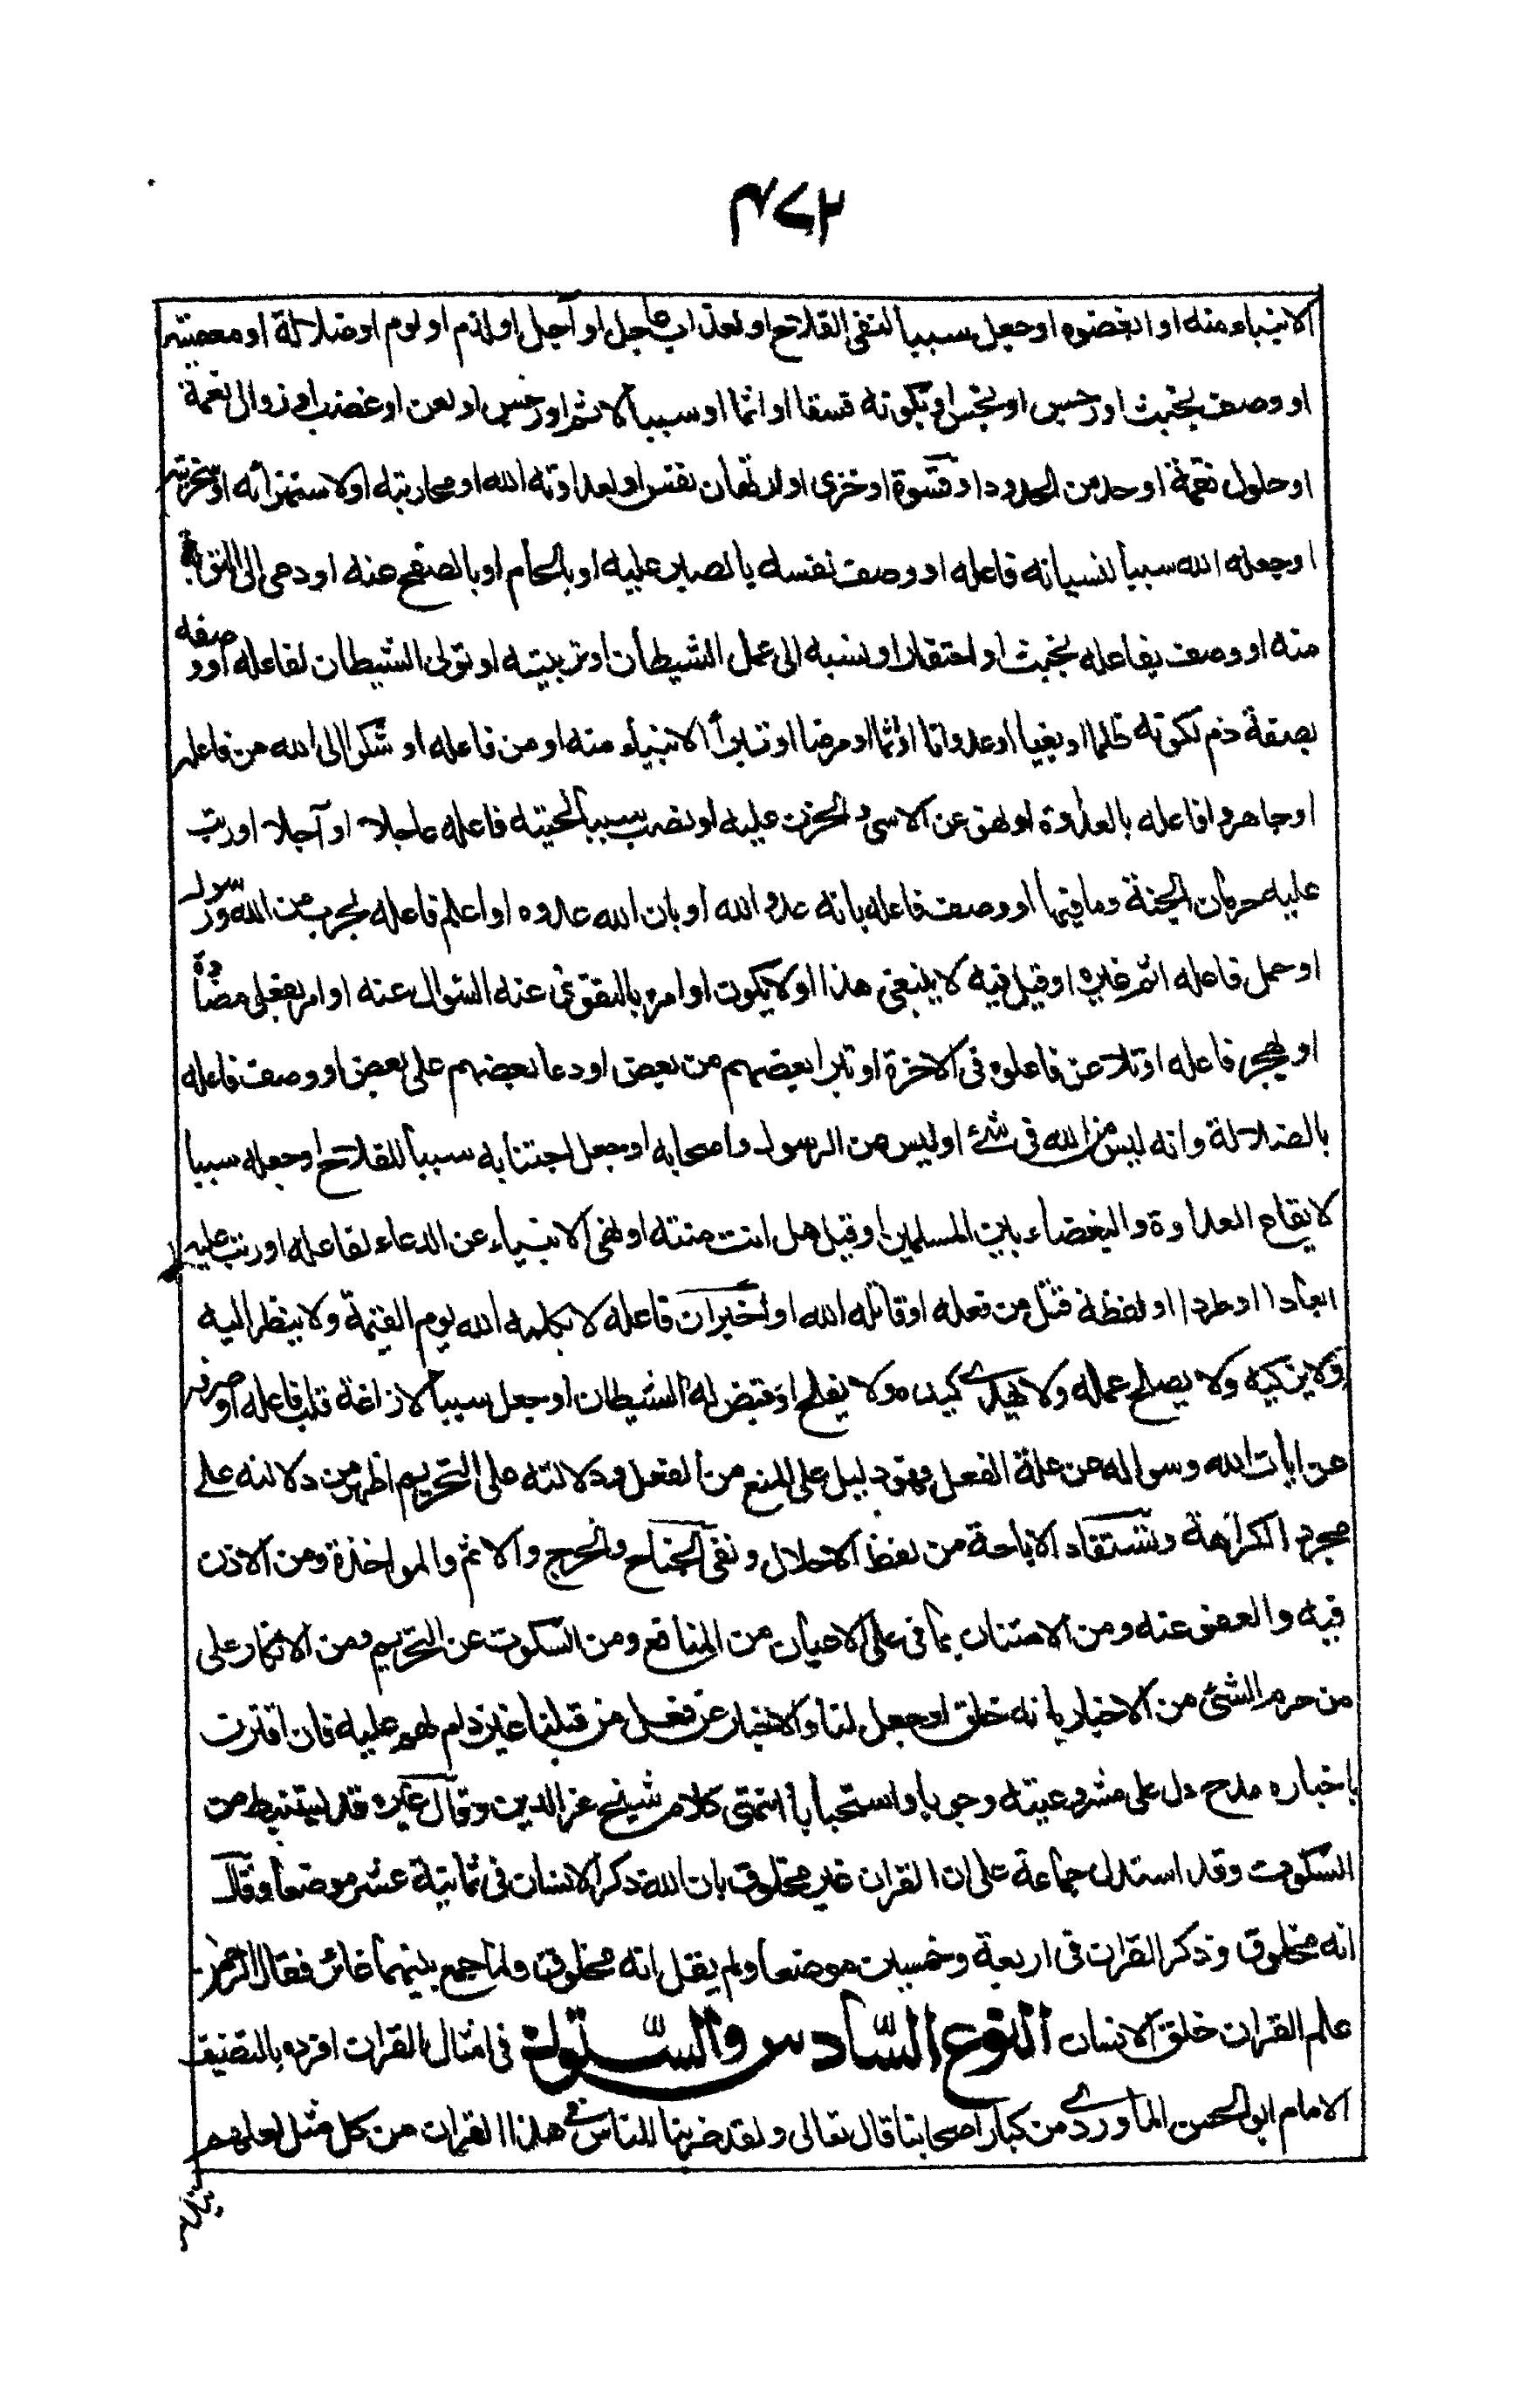 ٤٧٢
الانبياء منه او ابغضوه او جعل سببا لنفى الفلاح او لعذاب عاجل او آجل او لذم او لوم او ضلالة او معصية
او وصف بخبث او رجس او نجس او بكونه فسقا او اثما او سببا لاثم او رجس او لعن او غضب او زوال نعمة
او حلول نقمة او حد من الحدود او قسوة او خزى او ارتهان نفس او لعداوته الله او محاربته او لاستهزائه او سخريته
او جعله الله سببا لنسيانه فاعله او وصف نفسه بالصبر عليه او بالحلم او بالصفح عنه او دعى الى التوبة
منه او وصف بفاعله بخبث او احتقار او نسبه الى عمل الشيطان او تزيينه او تولى الشيطان لفاعله او وصفه
بصفة ذم لكونه ظلما او بغيا او عدوانا او اثما او مرضا او تبرأ الانبياء منه او من فاعله او شكوا الى الله من فاعله
او جاهروا فاعله بالعداوة او نهى عن الاسى و الحزن عليه او نصب سببا لخيبة فاعله عاجلا او آجلا او رتب
عليه حرمان الجنة وما فيها او وصف فاعله بانه عدو الله او بان الله عدوه او اعلم فاعله بحرب من الله ورسوله
او حمل فاعله اثم غيره او قيل فيه لا ينبغى هذا او لا يكون او امره بالتقوى عند السوال عنه او امر بفعل مضاده
او بهجر فاعله او تلاعن فاعلوه فى الاخرة او تبرا بعضهم من بعض او دعا بعضهم على بعض او وصف فاعله
بالضلالة وانه ليس من الله فى شئ او ليس من الرسول واصحابه او جعل اجتنابه سببا للفلاح او جعله سببا
لايقاع العداوة والبغضاء بين المسلمين او قيل هل انت منته او نهى الانبياء عن الدعاء لفاعله او رتب عليه
ابعادا او طردا او لفظة قتل من فعله او قاتله الله او أخبر ان فاعله لا يكلمه الله يوم القيمة ولا ينظر اليه
ولا يزكيه ولا يصلح عمله ولا يهدى كيده ولا يفلح او قيض له الشيطان او جعل سببا لازاغة قلب فاعله او صرفه
عن ايات الله وسواله عن علة الفعل فهو دليل على المنع من الفعل ودلالته على التحريم اظهر من دلالته على
مجرد الكراهة وتستفاد الاباحة من لفظ الاحلال ونفى الجناح والحرج والاثم والمواخذة ومن الاذن
فيه والعفو عنه ومن الامتنان بما فى على الاعيان من المنافع ومن السكوت عن التحريم ومن الانكار على
من حرم الشئ من الاخبار بانه خلق او جعل لنا والاخبار عن فعل من قبلنا غير ذام لهم عليه فان اقترن
باخباره مدح دل على مشروعيته وجوبا واستحبابا انتهى كلام شيخ عز الدين وقال غيره قد يستنبط من
السكوت وقد استدل جماعة على ان القران غير مخلوق بان الله ذكر الانسان فى ثمانية عشر موضعا وقال
انه مخلوق وذكر القران فى اربعة وخمسين موضعا ولم يقل انه مخلوق ولما جمع بينهما غائر فقال الرحمن
علم القران خلق الانسان النوع السّادس والسّتون فى امثال القران افرده بالتصنيف
الامام ابو الحسن الماوردى من كبار اصحابنا قال تعالى ولقد ضربنا للناس فى هذا القران من كل مثل لعلهم